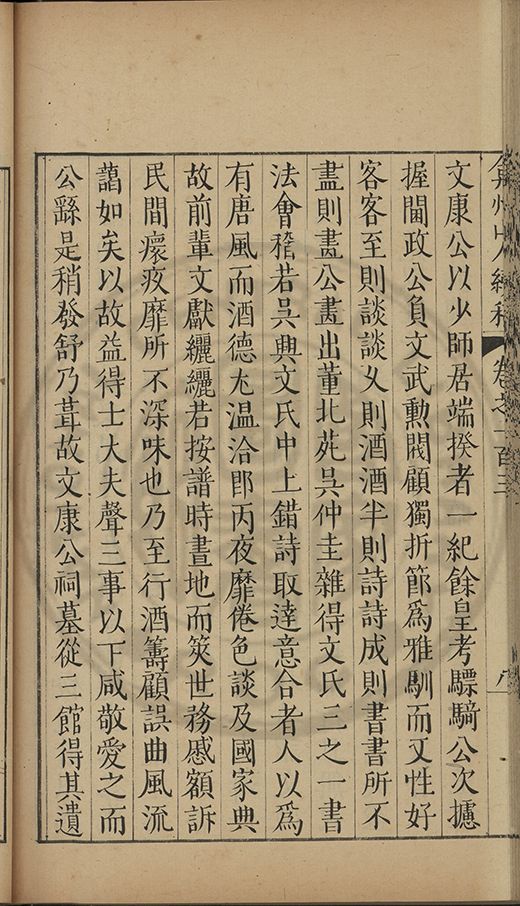 弇州山人續稿 卷之一百三 八
文康公以少師居端揆者一紀餘皇考驃騎公次攄
握閫政公負文武勳閥顧獨折節爲雅馴而又性好
客客至則談談乆則酒酒半則詩詩成則書書所不
盡則畫公畫出董北苑吳仲圭雜得文氏三之一書
法會稽若吳興文氏中上錯詩取達意合者人以爲
有唐風而酒德尤温洽即丙夜靡倦色談及國家典
故前輩文獻纚纚若按譜時畫地而筴世務慼額訴
民間瘝疚靡所不深味也乃至行酒籌顧誤曲風流
藹如矣以故益得士大夫聲三事以下咸敬愛之而
公繇是稍發舒乃葺故文康公祠墓從三館得其遺